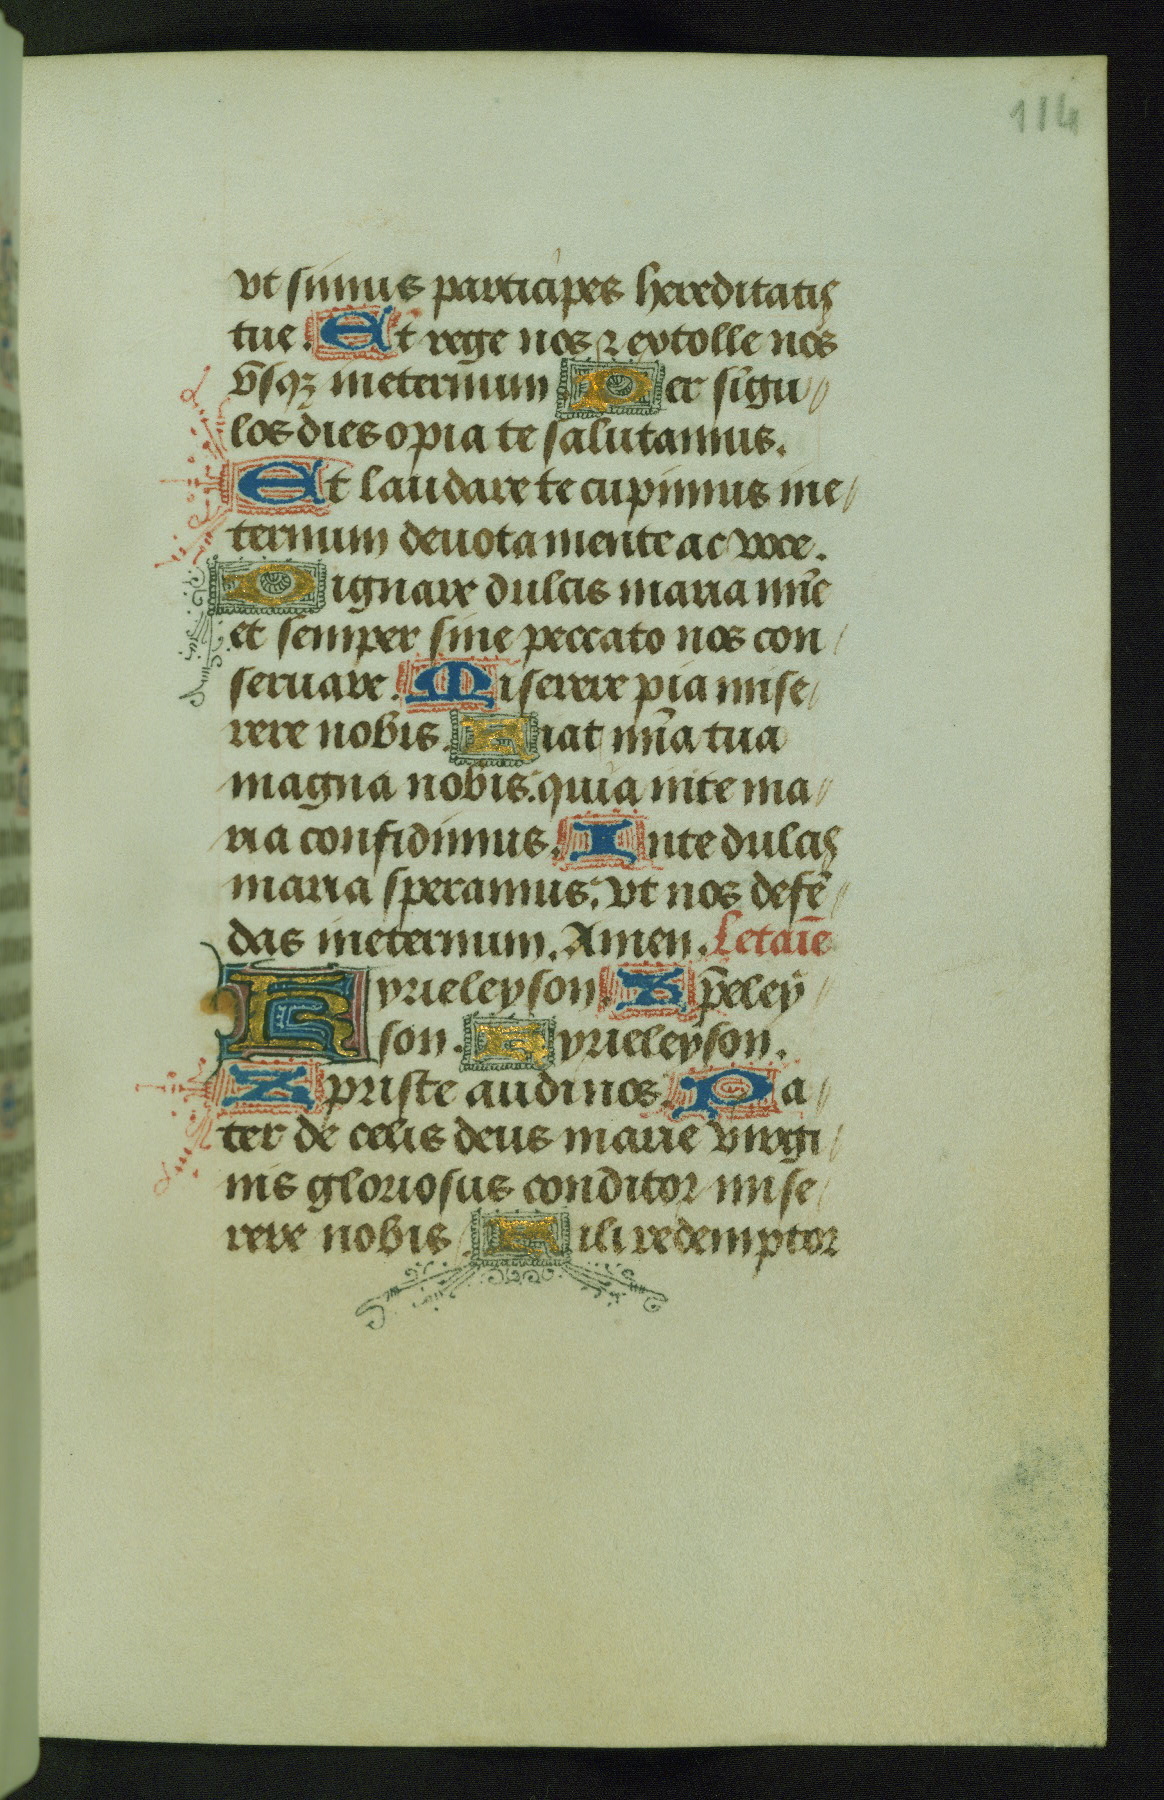 114
vt simus participes hereditatis
tue. Et rege nos ⁊ extolle nos
vs̄qꝫ ineternum Per sīgu
los dies o pia te salutamus.
Et laudare te cupimus ine
ternum deuota mente ac voce.
Dignare dulcis maria nūc
et semper sine peccato nos con
seruare. Miserere pia mise
rere nobis. Fiat mīa tua
magna nobis. quia inte ma
ria confidimus. Inte dulcis
maria speramus. vt nos defē
das ineternum. Amen. Letaīe
Kyrieleyson. Xp̄eley
son. Kyrieleyson.
Xpriste audi nos. Pa
ter de celis deus marie virgi
nis gloriosus conditor mise
rere nobis Fili redemptor